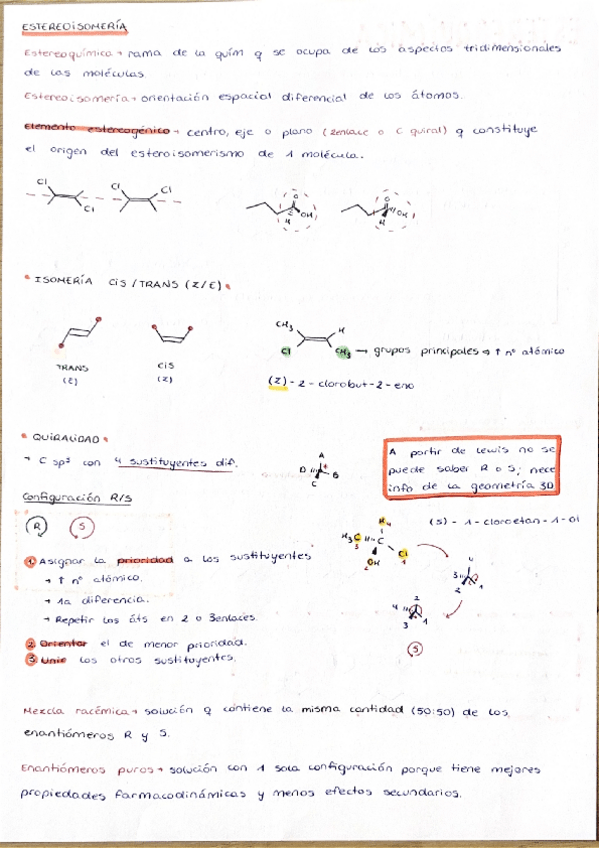 ESTEREOISOMERÍA
Estereoquímica → rama de la quím q se ocupa de los aspectos tridimensionales
de las moléculas.
Estereoisomería → orientación espacial diferencial de los átomos.
Elemento estereogénico → centro, eje o plano (2enlace o C quiral) q constituye
el origen del esteroisomerismo de 1 molécula.
Cl Cl Cl Cl
O OH H O OH H
• ISOMERÍA cis/TRANS (Z/E) •
CH3 H
Cl CH3 → grupos principales ⇒ ↑ nº atómico
TRANS cis
(E) (Z)
(Z)-2-clorobut-2-eno
• QUIRALIDAD •
→ C sp3 con 4 sustituyentes dif.
A D B C
A partir de Lewis no se
puede saber R o S; nece
info de la geometría 3D
Configuración R/S
R S
(S)-1-cloroetan-1-ol
H4
H3C C Cl
3 OH 1
2
1. Asignar la prioridad a los sustituyentes
→ ↑ nº atómico.
→ 1a diferencia.
→ Repetir los áts en 2 o 3enlaces.
4 3 1 2
2 4 3 1
S
2. Orientar el de menor prioridad.
3. Unir los otros sustituyentes.
Mezcla racémica → solución q contiene la misma cantidad (50:50) de los
enantiómeros R y S.
Enantiómeros puros → solución con 1 sola configuración porque tiene mejores
propiedades farmacodinámicas y menos efectos secundarios.